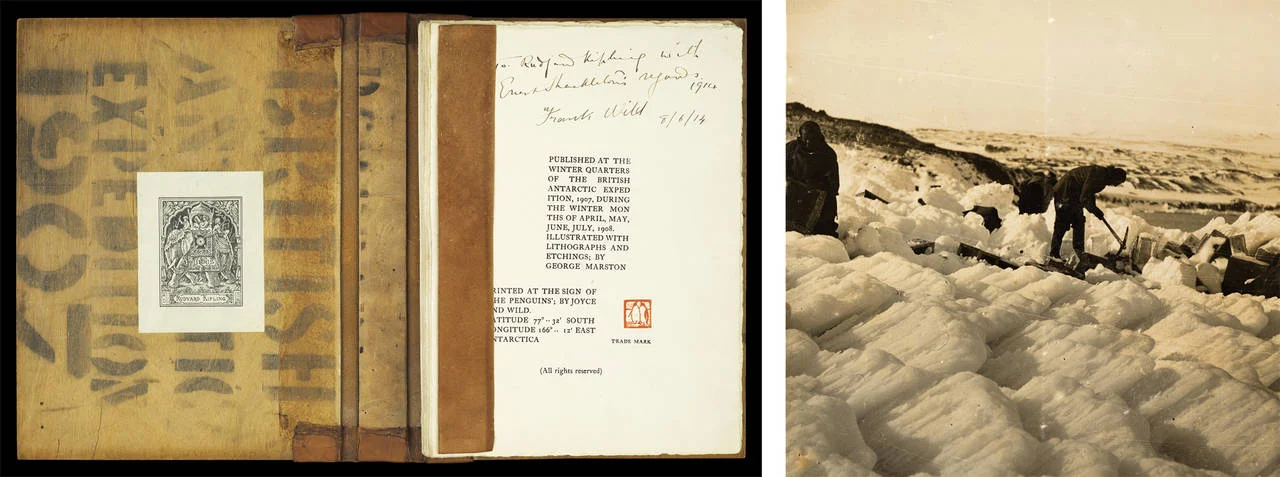 1907
EXPEDITION
ANTARCTIC
BRITISH
RUDYARD KIPLING
To Rudyard Kipling with
Ernest Shackleton's regards.
1914
Frank Wild 8/6/14
PUBLISHED AT THE
WINTER QUARTERS
OF THE BRITISH
ANTARCTIC EXPED
ITION, 1907, DURING
THE WINTER MON
THS OF APRIL, MAY,
JUNE, JULY, 1908.
ILLUSTRATED WITH
LITHOGRAPHS AND
ETCHINGS; BY
GEORGE MARSTON
RINTED AT THE SIGN OF
HE PENGUINS'; BY JOYCE
ND WILD.
ATITUDE 77° ·· 32' SOUTH
ONGITUDE 166° ·· 12' EAST
NTARCTICA
TRADE MARK
(All rights reserved)